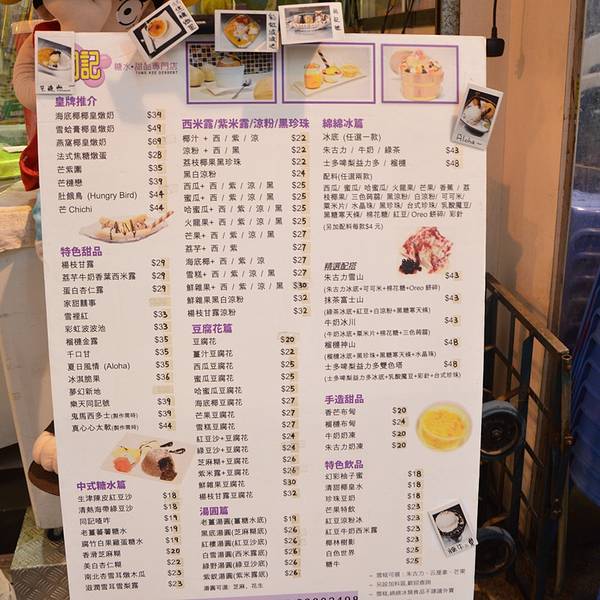 同記
糖水·甜品專門店
TUNG KEE DESSERT
皇牌推介
海底椰椰皇燉奶 $39
雪蛤膏椰皇燉奶 $49
燕窩椰皇燉奶 $69
法式焦糖燉蛋 $28
芒紫圍 $35
芒槤戀 $39
肚餓鳥 (Hungry Bird) $44
芒 Chichi $44
特色甜品
楊枝甘露 $29
荔芋牛奶香葉西米露 $29
蛋白杏仁露 $29
家甜囍事
雪裡紅 $33
彩虹波波池 $33
榴槤金露 $35
千口甘 $35
夏日風情 (Aloha) $35
冰淇脆果 $36
夢幻新地
樂天同記號 $39
鬼馬西多士(製作需時) $39
真心心太軟(製作需時) $44
中式糖水篇
生津陳皮紅豆沙 $18
清熱海帶綠豆沙 $18
同記喳咋 $19
老薑蕃薯糖水 $19
腐竹白果雞蛋糖水 $19
香滑芝麻糊 $20
美白杏仁糊 $22
南北杏雪耳燉木瓜 $23
滋潤雪耳雪梨露 $23
西米露/紫米露/涼粉/黑珍珠
椰汁 + 西 / 紫 / 涼 $22
涼粉 + 西 / 黑 $22
荔枝椰果黑珍珠 $22
黑白涼粉 $24
西瓜 + 西 / 紫 / 涼 / 黑 $25
蜜瓜 + 西 / 紫 / 涼 / 黑 $25
哈蜜瓜+ 西 / 紫 / 涼 / 黑 $25
火龍果+ 西 / 紫 / 涼 / 黑 $25
芒果+ 西 / 紫 / 涼 / 黑 $27
荔芋+ 西 / 紫 $27
海底椰+ 西 / 紫 / 涼 $27
雪糕+ 西 / 紫 / 涼 / 黑 $27
鮮雜果+ 西 / 紫 / 涼 / 黑 $30
鮮雜果黑白涼粉 $32
楊枝甘露涼粉 $32
豆腐花篇
豆腐花 $20
薑汁豆腐花 $22
西瓜豆腐花 $25
蜜瓜豆腐花 $25
哈蜜瓜豆腐花 $25
海底椰豆腐花 $27
芒果豆腐花 $27
雪糕豆腐花 $27
紅豆沙+豆腐花 $24
綠豆沙+豆腐花 $24
芝麻糊+豆腐花 $26
紫米露+豆腐花 $26
鮮雜果豆腐花 $30
楊枝甘露豆腐花 $32
湯圓篇
老薑湯圓(薑糖水底) $19
黑底湯圓(芝麻糊底) $26
紅樓湯圓(紅豆沙底) $26
白雪湯圓(西米露底) $26
綠野湯圓(綠豆沙底) $26
紫釵湯圓(紫米露底) $26
湯圓可選: 芝麻、花生
綿綿冰篇
冰底 (任選一款)
朱古力 / 牛奶 / 綠茶 $43
士多啤梨益力多 / 榴槤 $48
配料(任選兩款)
西瓜/ 蜜瓜/ 哈蜜瓜/ 火龍果/ 芒果/ 香蕉 / 荔
枝椰果/ 三色蒟蒻/ 黑涼粉/ 白涼粉/ 可可米/
粟米片/ 水晶珠/ 黑珍珠/ 台式珍珠/ 乳酸魔豆/
黑糖寒天條/ 棉花糖/ 紅豆/ Oreo 餅碎/ 彩針
(另加配料每款$4元)
精選配搭
朱古力雪山 $43
(朱古力冰底+可可米+棉花糖+Oreo 餅碎)
抹茶富士山 $43
(綠茶冰底+紅豆+白涼粉+黑糖寒天條)
牛奶冰川 $43
(牛奶冰底+粟米片+棉花糖+三色蒟蒻)
榴槤神山 $48
(榴槤冰底+黑珍珠+黑糖寒天條+水晶珠)
士多啤梨益力多雙色塔 $48
(士多啤梨益力多冰底+乳酸魔豆+彩針+台式珍珠)
手造甜品
香芒布甸 $20
榴槤布甸 $24
牛奶奶凍 $20
朱古力奶凍 $20
特色飲品
幻彩柚子蜜 $18
清甜椰皇水 $18
珍珠豆奶 $18
芒果特飲 $23
紅豆涼粉冰 $23
紅豆牛奶西米露 $23
椰林樹影 $23
白色世界 $25
糖牛 $25
~ 雪糕可選：朱古力、云喱拿、芒果
~ 另設加料區, 歡迎查詢
~ 雪糕,綿綿冰類食品不建議外賣
Aloha